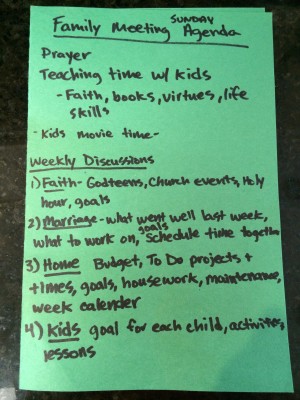 Family Meeting SUNDAY Agenda
Prayer
Teaching time w/ kids
- Faith, books, virtues, life
skills
- Kids movie time -
Weekly Discussions
1) Faith - Godteens, Church events, Holy
hour, goals
2) Marriage - what went well last week,
what to work on, goals Schedule time together
3) Home Budget, To Do projects +
times, goals, housework, maintenance,
week calender
4) Kids goal for each child, activities,
lessons